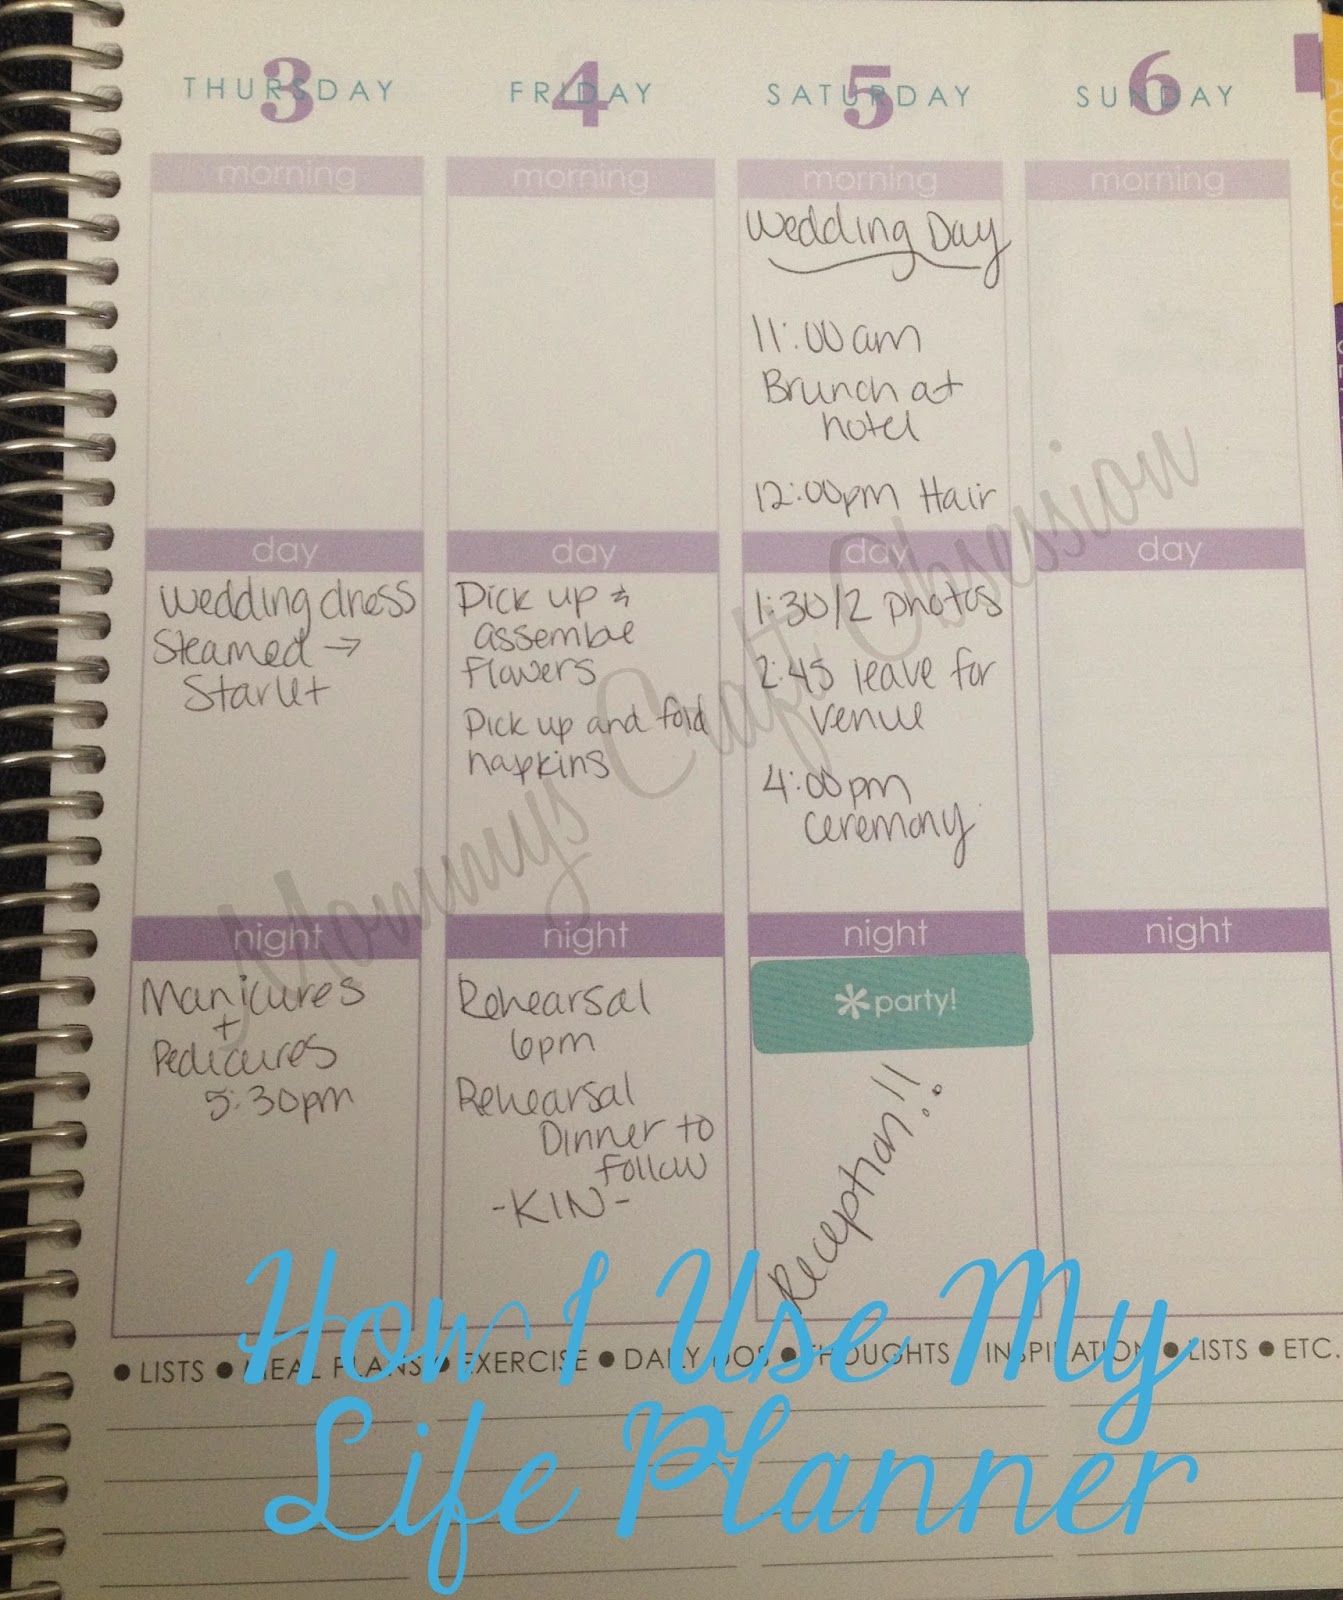 THURSDAY 3
FRIDAY 4
SATURDAY 5
SUNDAY 6
AUGUST
morning
morning
morning
morning
Wedding Day
11:00am
Brunch at
hotel
12:00pm Hair
day
day
day
day
Wedding dress
Steamed →
Starlet
Pick up &
assemble
flowers
Pick up and fold
napkins
1:30/2 photos
2:45 leave for
venue
4:00pm
ceremony
night
night
night
night
Manicures
+
Pedicures
5:30pm
Rehearsal
6pm
Rehearsal
Dinner to
follow
-KIN-
*party!
Reception!!
Mommys Craft Obsession
• LISTS • MEAL PLANS • EXERCISE • DAILY DOS • THOUGHTS • INSPIRATION • LISTS • ETC.
How I Use My
Life Planner